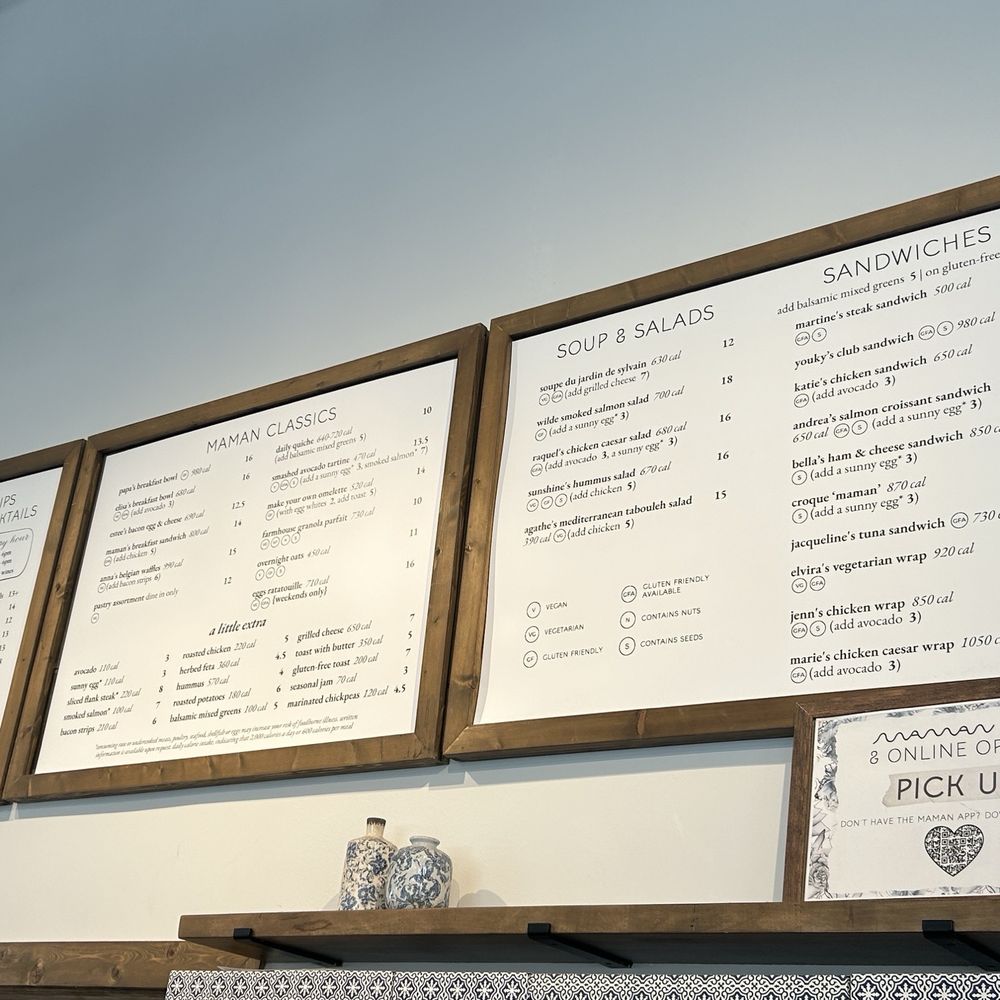 IPS
KTAILS
hour
wines
13+
14
12
13
13
MAMAN CLASSICS
papa's breakfast bowl V 980 cal 16
elisa's breakfast bowl 680 cal 16
(add avocado 3)
estee's bacon egg & cheese 690 cal 12.5
maman's breakfast sandwich 800 cal 14
(add chicken 5)
anna's belgian waffles 990 cal 15
(add bacon strips 6)
pastry assortment dine in only 12
daily quiche 640-720 cal 10
(add balsamic mixed greens 5)
smashed avocado tartine 470 cal 13.5
(add a sunny egg* 3, smoked salmon* 7)
make your own omelette 520 cal 14
(with egg whites 2, add toast 5)
farmhouse granola parfait 730 cal 10
overnight oats 450 cal 11
eggs ratatouille 710 cal 16
{weekends only}
a little extra
avocado 110 cal 3
sunny egg* 110 cal 3
sliced flank steak* 220 cal 8
smoked salmon* 100 cal 7
bacon strips 210 cal 6
roasted chicken 220 cal 5
herbed feta 360 cal 4.5
hummus 570 cal 4
roasted potatoes 180 cal 6
balsamic mixed greens 100 cal 5
grilled cheese 650 cal 7
toast with butter 350 cal 5
gluten-free toast 200 cal 7
seasonal jam 70 cal 3
marinated chickpeas 120 cal 4.5
*consuming raw or undercooked meats, poultry, seafood, shellfish or eggs may increase your risk of foodborne illness. written
information is available upon request.
SOUP & SALADS
soupe du jardin de sylvain 630 cal 12
VG GFA (add grilled cheese 7)
wilde smoked salmon salad 700 cal 18
GF (add a sunny egg* 3)
raquel's chicken caesar salad 680 cal 16
GFA (add avocado 3, a sunny egg* 3)
sunshine's hummus salad 670 cal 16
VG GF S (add chicken 5)
agathe's mediterranean tabouleh salad 15
390 cal VG (add chicken 5)
V VEGAN
VG VEGETARIAN
GF GLUTEN FRIENDLY
GFA GLUTEN FRIENDLY
AVAILABLE
N CONTAINS NUTS
S CONTAINS SEEDS
SANDWICHES
add balsamic mixed greens 5 | on gluten-free
martine's steak sandwich 500 cal
GFA S
youky's club sandwich GFA S 980 cal
katie's chicken sandwich 650 cal
GFA (add avocado 3)
andrea's salmon croissant sandwich
650 cal GFA S (add a sunny egg* 3)
bella's ham & cheese sandwich 850
S (add a sunny egg* 3)
croque 'maman' 870 cal
S (add a sunny egg* 3)
jacqueline's tuna sandwich GFA 730
elvira's vegetarian wrap 920 cal
VG GFA
jenn's chicken wrap 850 cal
GFA S (add avocado 3)
marie's chicken caesar wrap 1050
GFA (add avocado 3)
maman
& ONLINE
PICK U
DON'T HAVE THE MAMAN APP?